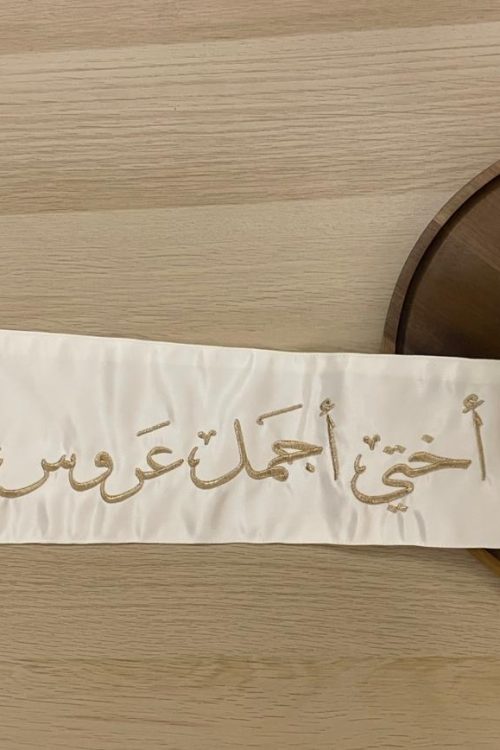 أختي أجمل عَروس